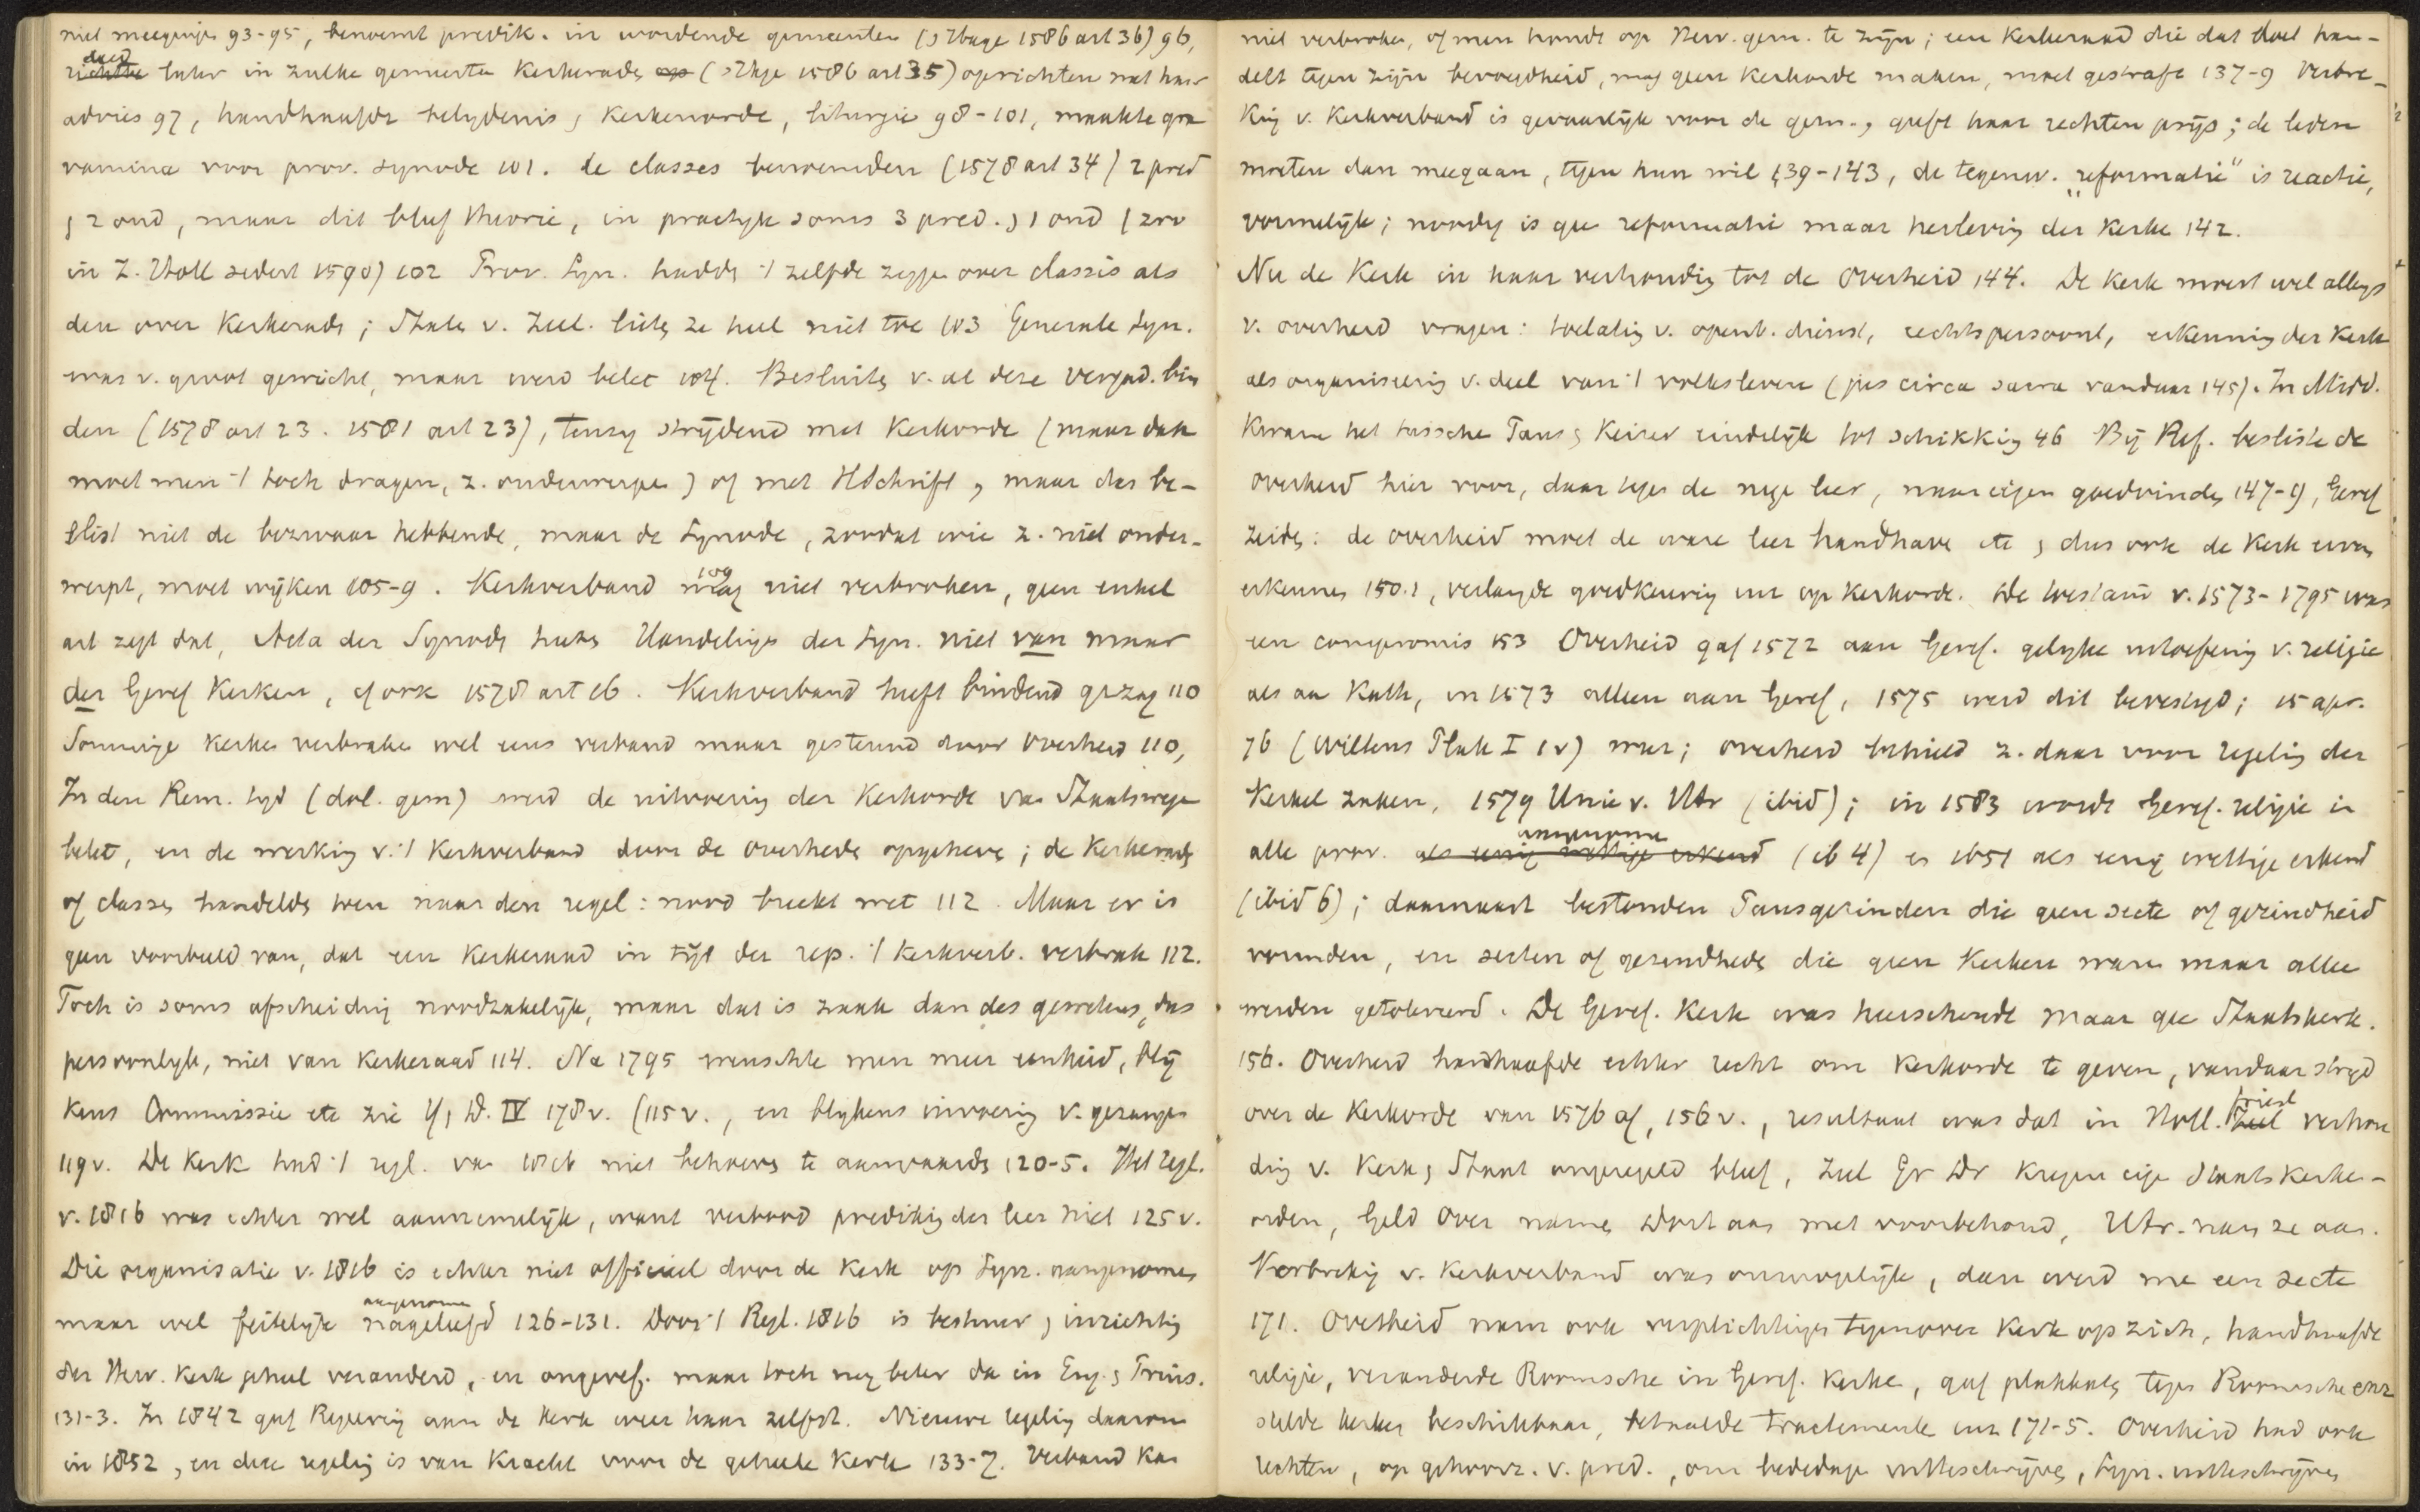 niet meegingen 93-95, benoemt predik. in wordende gemeenten (sHage 1586 art 36) 96,
deed
richtte later in zulke gemeente Kerkerads op (sHage 1586 art 35) oprichten met haar
advies 97, handhaafde belydenis, Kerkenorde, liturgie 98-101, maakte gra
vamina voor prov. synode 101. de classes benoemden (1578 art 34) 2 pred
, 2 oud, maar dit bleef theorie, in practyk soms 3 pred. , 1 oud (zoo
in Z. Holl sedert 1590) 102 Prov. Syn. hadde 't zelfde zegge over classis als
den over Kerkerads; Staten v. Zeel. lieten ze heel niet toe 103 Generale Syn.
was v. groot gewicht, maar werd belet 104. Besluiten v. al deze vergad. bin
den (1578 art 23. 1581 art 23), tenzy strijdend met Kerkorde (maar dan
moet men 't toch dragen, z. onderwerpen) of met HSchrift, maar dus be-
slist niet de bezwaar hebbende, maar de Synode, zoodat wie z. niet onder-
werpt, moet wijken 105-9. Kerkverband mag 109 niet verbroken, geen enkel
art zegt dat, Acta der Synods heeten Handelingen der Syn. niet van maar
der Geref Kerken, cf ook 1578 art 16. Kerkverband heeft bindend gezag 110
Sommige Kerken verbraken wel eens verband maar gesteund door Overheid 110,
In den Rem. tyd (dol. gem) werd de uitvoering der Kerkorde van Staatswege
belet, en de werking v. 't Kerkverband door de overheids opgeheven; de Kerkerads
of classes handelde toen naar den regel: nood breekt wet 112. Maar er is
geen voorbeeld van, dat een Kerkeraad in tijd der rep. 't Kerkverb. verbrak 112.
Toch is soms afscheiding noodzakelijk, maar dat is zaak dan des gewetens, dus
persoonlyk, niet van Kerkeraad 114. Na 1795 wenschte men meer eenheid, blij
kens Commissie etc zie Y, D. IV 178 v. (115 v., en blykens invoering v. gezangen
119 v. De Kerk had 't regl. van 1816 niet behoeven te aanvaarden 120-5. Het regl.
v. 1816 was echter wel aannemelijk, want verbood prediking der leer niet 125 v.
Die organisatie v. 1816 is echter niet officieel door de Kerk op Syn. aangenomen
maar wel feitelijk aangenomen , nageleefd 126-131. Door 't Regl. 1816 is bestuur , inrichting
der Herv. Kerk geheel veranderd, en ongeref. maar toch nog beter dan in Eng. , Pruis.
131-3. In 1842 gaf Regeering aan de Kerk weer haar zelfst. Nieuwe regeling daarom
in 1852, en deze regeling is van Kracht voor de geheele Kerk 133-7. Verband kan
niet verbroken, of men houdt op Herv. gem. te zijn; een Kerkeraad die dat doet han-
delt tegen zijn bevoegdheid, mag geen Kerkorde maken, moet gestraft 137-9 Verbre-
king v. Kerkverband is gevaarlijk voor de gem., geeft haar rechten prijs; de leden
moeten dan meegaan, tegen hun wil 139-143, de tegenw. „reformatie" is reactie,
vormelijk; noodig is gee reformatie maar herleving der Kerke 142.
Nu de Kerk in haar verhouding tot de Overheid 144. De Kerk moest wel allengs
v. overheid vragen: toelating v. openb. dienst, rechtspersoonl, erkenning der Kerk
als organiseering v. deel van 't volksleven (jus circa sacra vandaar 145). In Midd.
Kwam het tussche Paus , Keizer eindelijk tot schikking 46 Bij Ref. besliste de
Overheid hier voor, daar tegen de nieuwe leer, naar eigen goedvinden 147-9, Geref
zeiden: de overheid moet de ware leer handhaven etc , dus ook de Kerk eeren
erkennen 150.1, verlangde goedkeuring enz op Kerkorde. De toestand v. 1573-1795 was
een compromis 153 Overheid gaf 1572 aan Geref. gelyke uitoefening v. religie
als aan Kath, in 1573 alleen aan Geref, 1575 werd dit bevestigd; 15 apr.
76 (Wiltens Plak I 1v) weer; overheid behield z. daar voor regeling der
Kerkel zaken, 1579 Unie v. Utr (ibid); in 1583 wordt Geref. religie in
alle prov. als eenig wettige erkend aangenome (ib 4) en 1651 als eenig wettige erkend
(ibid 6); daarnaast bestonden Pausgezinden die geen secte of gezindheid
vormden, en secten of gezindheden die geen Kerken waren maar alleen
werden getolereerd. De Geref. Kerk was heerschende maar gee Staatskerk.
156. Overheid handhaafde echter recht om Kerkorde te geven, vandaar stryd
over de Kerkorde van 1576 af, 156 v., resultaat was dat in Holl. Zeel Friesl verhou
ding v. Kerk , Staat ongeregeld bleef, Zeel Gr Dr kregen eige Staats Kerke-
orden, Geld Over namen Dort aan met voorbehoud, Utr. nam ze aan.
Verbreking v. Kerkverband was onmogelijk, dan werd me een secte
171. Overheid nam ook verplichtingen tegenover Kerk op zich, handhaafde
religie, veranderde Roomsche in Geref. Kerke, gaf plakkaten tegen Roomsche enz
stelde Kerken beschikbaar, betaalde tractemente enz 171-5. Overheid had ook
rechten, op gehoorz. v. pred., om bededage uitteschrijven, Syn. uitteschrijven